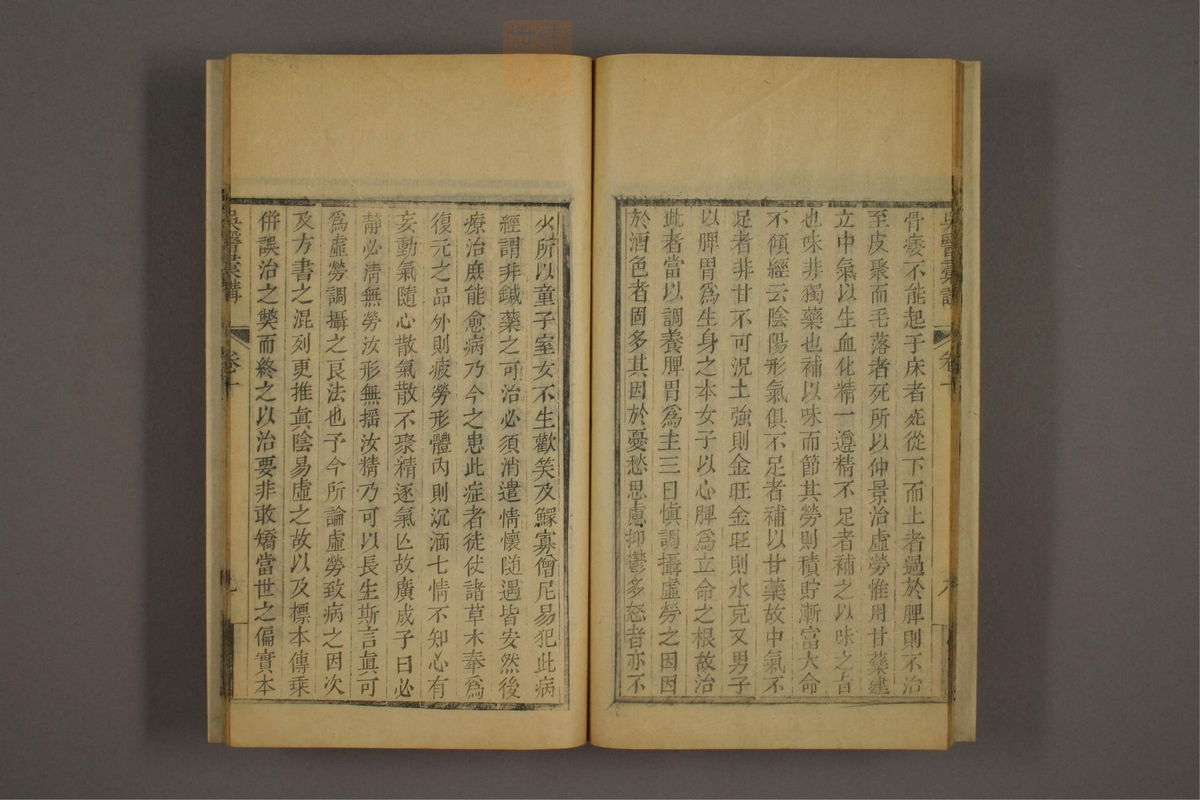 骨痿不能起于床者死從下而上者過於脾則不治
至皮聚而毛落者死所以仲景治虛勞惟用甘藥建
立中氣以生血化精一遵精不足者補之以味之旨
也味非獨藥也補以味而節其勞則積貯漸富大命
不傾經云陰陽形氣俱不足者補以甘藥故中氣不
足者非甘不可況土強則金旺金旺則水克又男子
以脾胃為生身之本女子以心脾為立命之根故治
此者當以調養脾胃為主三曰慎調攝虛勞之因因
於酒色者固多其因於憂愁思慮抑鬱多怒者亦不
吳醫彙講
卷十
九
少所以童子室女不生歡笑及鰥寡僧尼易犯此病
經謂非鍼藥之可治必須消遣情懷随遇皆安然後
療治庶能愈病乃今之患此症者徒使諸草木奉為
復元之品外則疲勞形體內則沉湎七情不知心有
妄動氣隨心散氣散不聚精逐氣亾故廣成子曰必
靜必清無勞汝形無搖汝精乃可以長生斯言眞可
為虛勞調攝之良法也予今所論虛勞致病之因次
及方書之混列更推眞陰易虛之故以及標本傳乘
併誤治之獘而終之以治要非敢矯當世之偏實本
吳醫彙講
卷十